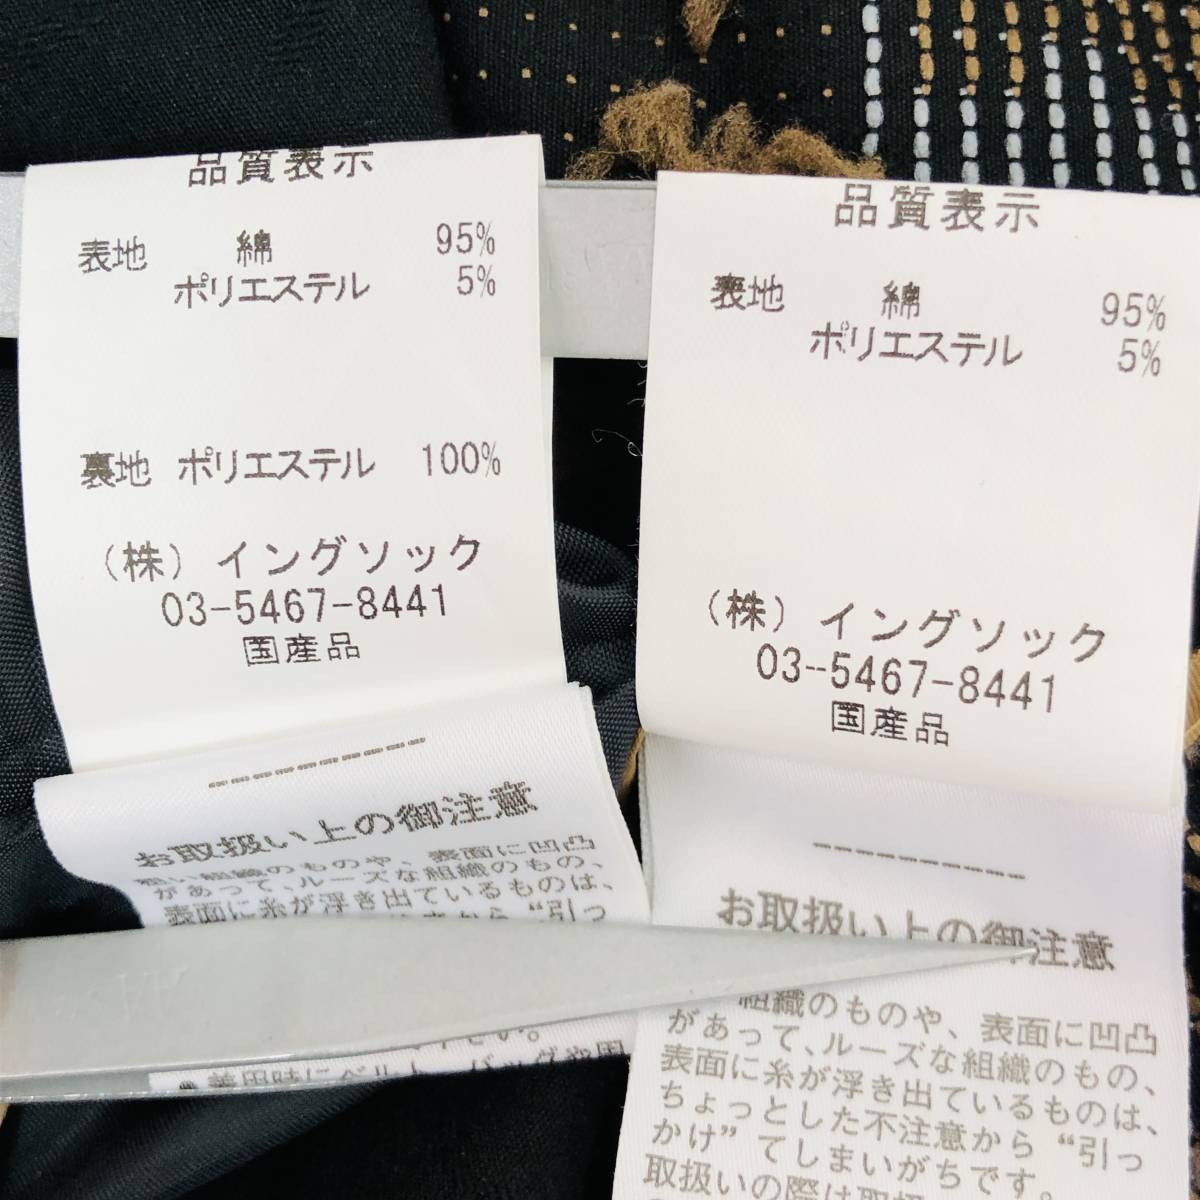 品質表示
表地 綿 95%
ポリエステル 5%
裏地 ポリエステル 100%
(株) イングソック
03-5467-8441
国産品
お取扱い上の御注意
粗い組織のものや、表面に凹凸
があって、ルーズな組織のもの、
表面に糸が浮き出ているものは、
から “引っ
さい。
● 着用時にベルト、バッグや固
品質表示
表地 綿 95%
ポリエステル 5%
(株) イングソック
03-5467-8441
国産品
お取扱い上の御注意
組織のものや、表面に凹凸
があって、ルーズな組織のもの、
表面に糸が浮き出ているものは、
ちょっとした不注意から “引っ
かけ” てしまいがちです。
取扱いの際は取扱